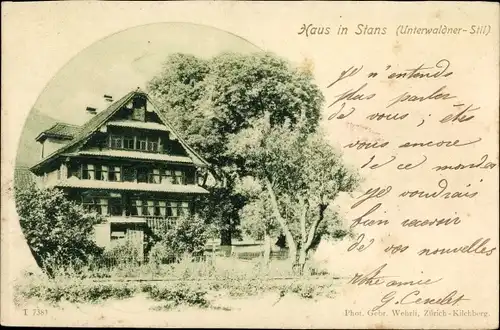 Haus in Stans (Unterwaldner-Stil)
Je n'entends
plus parler
de vous; êtes
vous encore
de ce monde
Je voudrais
bien recevoir
de vos nouvelles
Votre amie
T 7381
Phot. Gebr. Wehrli, Zürich-Kilchberg.